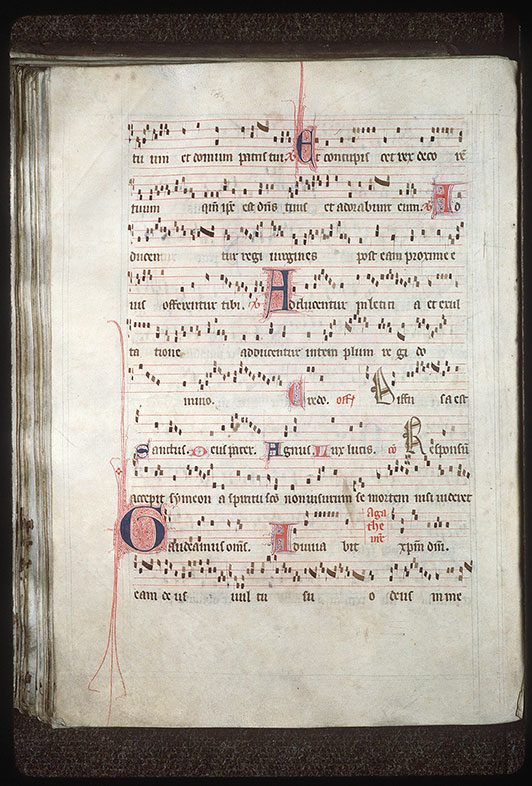 tu um et domum patris tui. Et concupis cet rex deco rē
tuum qm̄ ip̄e est dn̄s tuus et adorabunt eum. Ad
ducentur tur regi uirgines post eam proxime e
ius offerentur tibi. Adducentur in leticia et exul
ta tione adducentur in tem plum re gi do
mino. Credo. off̄ Diffu sa est
Sanctus. Deus pater. Agnus. Lux lucis. cō Responsū
accepit symeon a spiritu sc̄o non uisurum se mortem nisi uideret
Gaudeamus om̄s. Adiuua bit xp̄m dn̄m. Aga the uir̄
eam de us uul tu su o deus in me